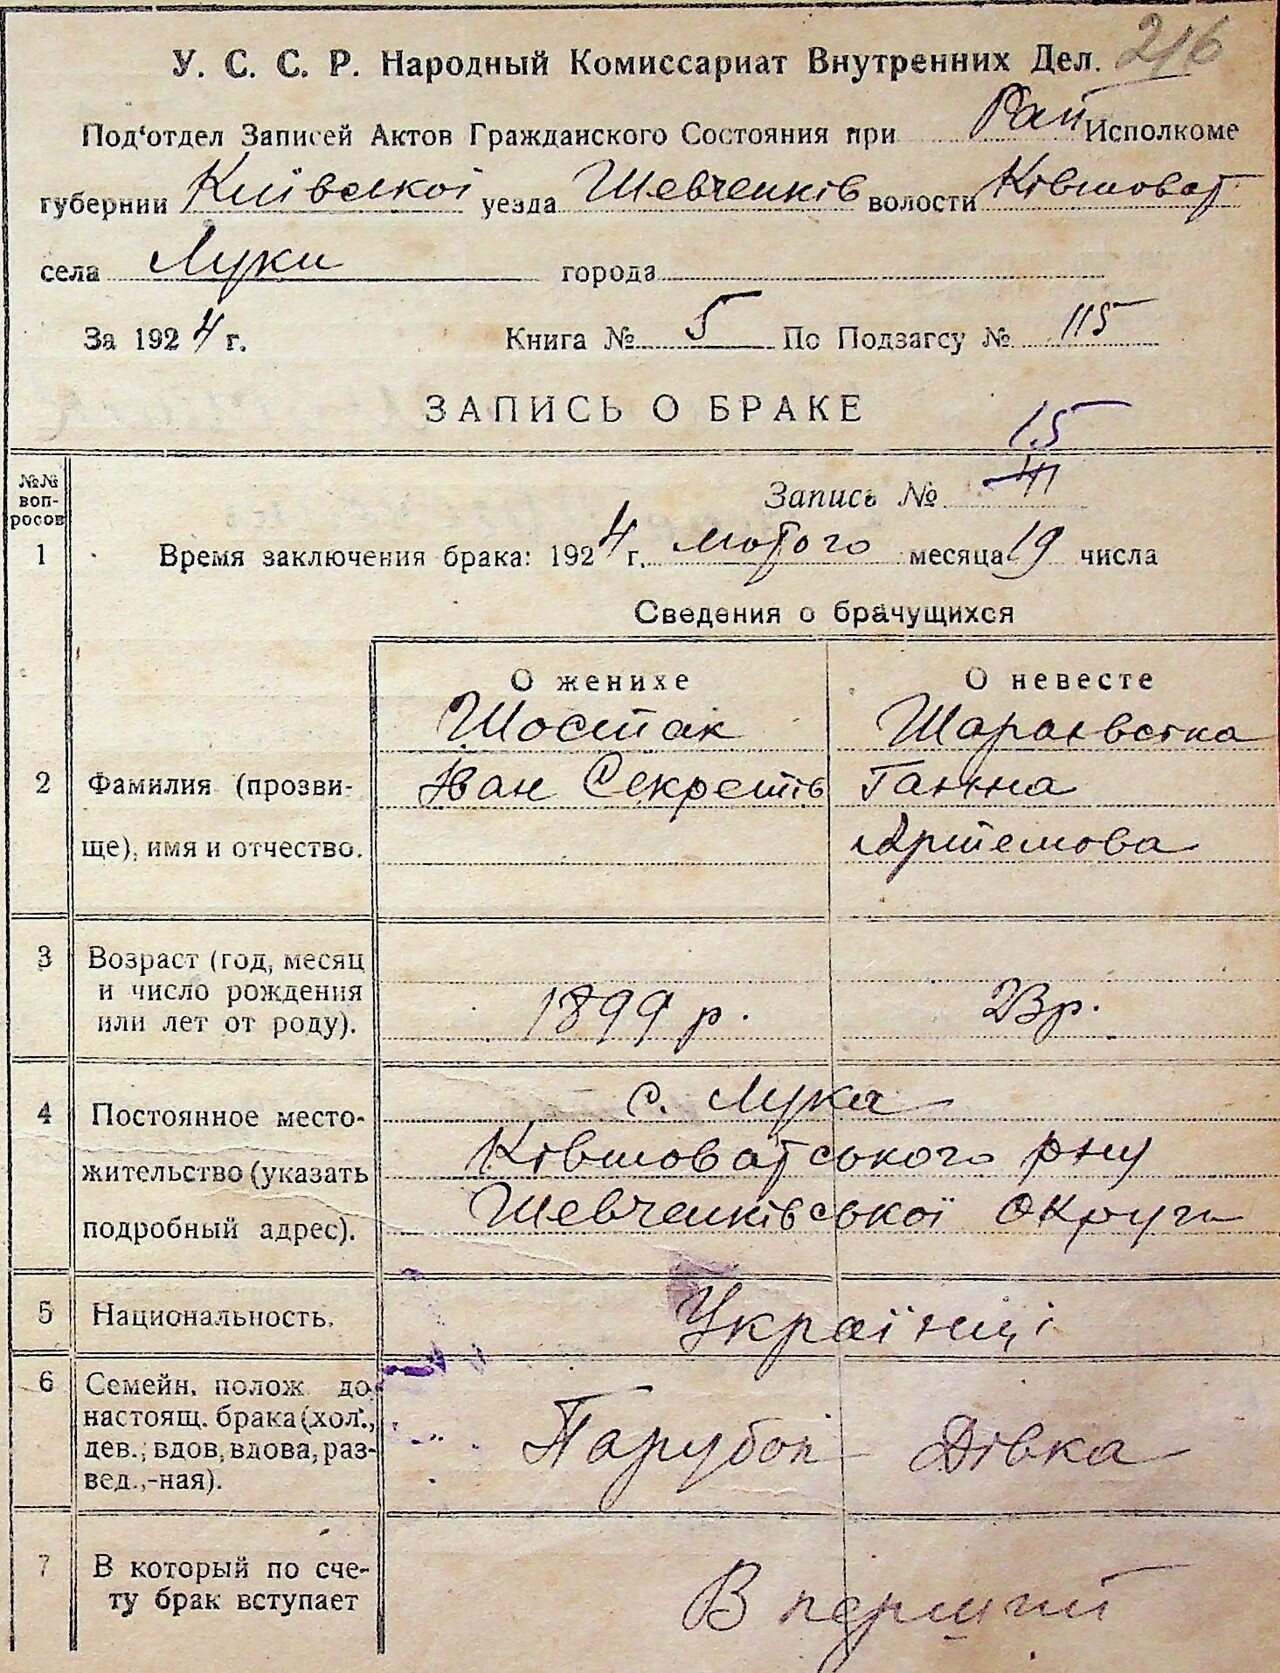 216
У. С. С. Р. Народный Комиссариат Внутренних Дел.
Под'отдел Записей Актов Гражданского Состояния при Рай Исполкоме
губернии Київської уезда Шевченків волости Ківшоват
села Луки города
За 1924 г. Книга № 5 По Подзагсу № 115
ЗАПИСЬ О БРАКЕ
15
№№ воп-росов
Запись № 111
1 Время заключения брака: 1924 г. лютого месяца 19 числа
Сведения о брачущихся
О женихе О невесте
Шостак Шараєвська
2 Фамилия (прозви- Іван Секретів Ганна
ще), имя и отчество. Артемова
3 Возраст (год, месяц
и число рождения 1899 р. 23 р.
или лет от роду).
4 Постоянное место- с. Лука
жительство (указать Ківшоватського рну
подробный адрес). Шевченківської округи
5 Национальность. Українці
6 Семейн. полож до
настоящ. брака (хол., Парубок Дівка
дев., вдов, вдова, раз-
вед.,-ная).
7 В который по сче- В перший
ту брак вступает